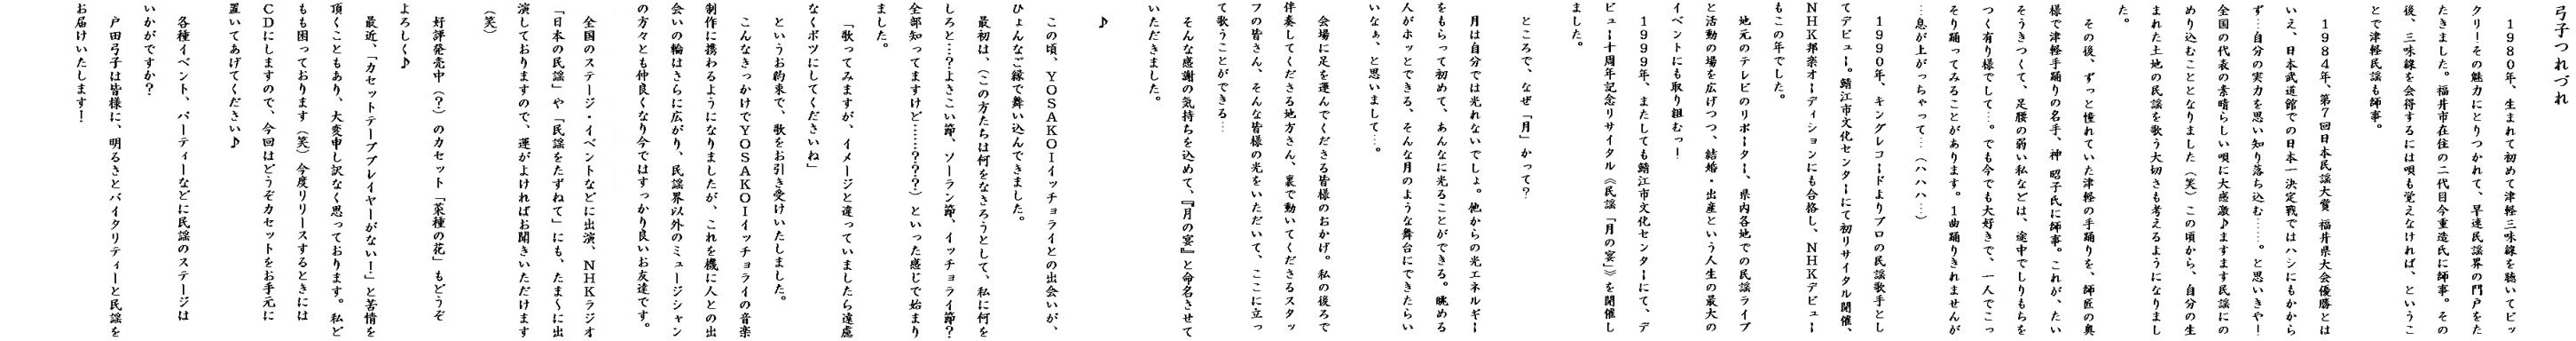 弓子つれづれ
１９８０年、生まれて初めて津軽三味線を聴いてビッ
クリ！その魅力にとりつかれて、早速民謡界の門戸をた
たきました。福井市在住の二代目今重造氏に師事。その
後、三味線を会得するには唄も覚えなければ、というこ
とで津軽民謡も師事。
１９８４年、第７回日本民謡大賞 福井県大会優勝とは
いえ、日本武道館での日本一決定戦ではハシにもかから
ず…自分の実力を思い知り落ち込む……。と思いきや！
全国の代表の素晴らしい唄に大感激♪ますます民謡にの
めり込むこととなりました（笑）この頃から、自分の生
まれた土地の民謡を歌う大切さも考えるようになりまし
た。
その後、ずっと憧れていた津軽の手踊りを、師匠の奥
様で津軽手踊りの名手、神 昭子氏に師事。これが、たい
そうきつくて、足腰の弱い私などは、途中でしりもちを
つく有り様でして…。でも今でも大好きで、一人でこっ
そり踊ってみることがあります。１曲踊りきれませんが
…息が上がっちゃって…（ハハハ…）
１９９０年、キングレコードよりプロの民謡歌手とし
てデビュー。鯖江市文化センターにて初リサイタル開催、
ＮＨＫ邦楽オーディションにも合格し、ＮＨＫデビュー
もこの年でした。
地元のテレビのリポーター、県内各地での民謡ライブ
と活動の場を広げつつ、結婚・出産という人生の最大の
イベントにも取り組むっ！
１９９９年、またしても鯖江市文化センターにて、デ
ビュー十周年記念リサイタル《民謡「月の宴」》を開催し
ました。
ところで、なぜ「月」かって？
月は自分では光れないでしょ。他からの光エネルギー
をもらって初めて、あんなに光ることができる。眺める
人がホッとできる、そんな月のような舞台にできたらい
いなぁ、と思いまして…。
会場に足を運んでくださる皆様のおかげ。私の後ろで
伴奏してくださる地方さん、裏で動いてくださるスタッ
フの皆さん、そんな皆様の光をいただいて、ここに立っ
て歌うことができる…
そんな感謝の気持ちを込めて、『月の宴』と命名させて
いただきました。
♪
この頃、ＹＯＳＡＫＯＩイッチョライとの出会いが、
ひょんなご縁で舞い込んできました。
最初は、（この方たちは何をなさろうとして、私に何を
しろと…？よさこい節、ソーラン節、イッチョライ節？
全部知ってますけど……？？？）といった感じで始まり
ました。
「歌ってみますが、イメージと違っていましたら遠慮
なくボツにしてくださいね」
というお約束で、歌をお引き受けいたしました。
こんなきっかけでＹＯＳＡＫＯＩイッチョライの音楽
制作に携わるようになりましたが、これを機に人との出
会いの輪はさらに広がり、民謡界以外のミュージシャン
の方々とも仲良くなり今ではすっかり良いお友達です。
全国のステージ・イベントなどに出演、ＮＨＫラジオ
「日本の民謡」や「民謡をたずねて」にも、たま～に出
演しておりますので、運がよければお聞きいただけます
（笑）
好評発売中（？）のカセット「菜種の花」もどうぞ
よろしく♪
最近、「カセットテーププレイヤーがない！」と苦情を
頂くこともあり、大変申し訳なく思っております。私ど
もも困っております（笑）今度リリースするときには
ＣＤにしますので、今回はどうぞカセットをお手元に
置いてあげてください♪
各種イベント、パーティーなどに民謡のステージは
いかがですか？
戸田弓子は皆様に、明るさとバイタリティーと民謡を
お届けいたします！